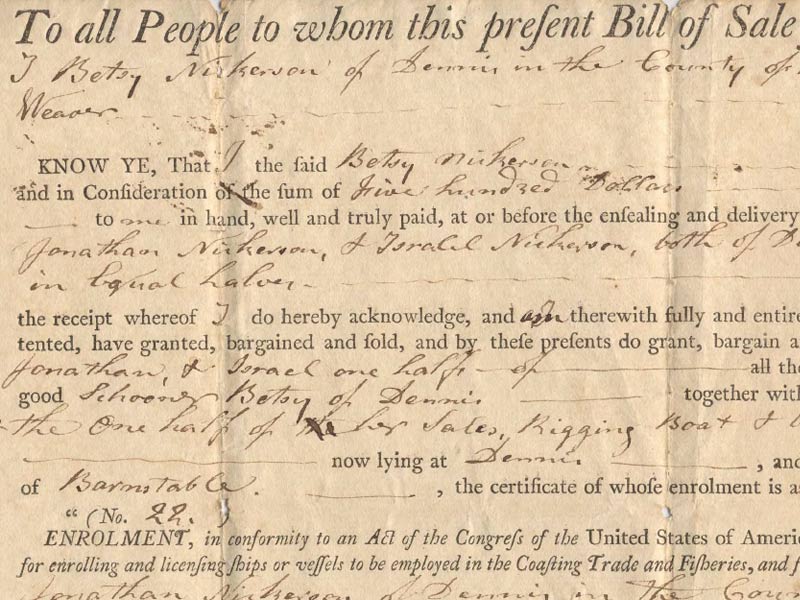 To all People to whom this preſent Bill of Sale
I Betsy Nickerson of Dennis in the County of
Weaver
KNOW YE, That I the ſaid Betsy Nickerson
and in Conſideration of the ſum of five hundred Dollars
to me in hand, well and truly paid, at or before the enſealing and delivery
Jonathan Nickerson, & Israel Nickerson, both of D
in Equal halves
the receipt whereof I do hereby acknowledge, and am therewith fully and entire
tented, have granted, bargained and ſold, and by theſe preſents do grant, bargain a
Jonathan, & Israel one half of all the
good Schooner Betsy of Dennis together with
the One half of her Sales, Rigging Boat &
now lying at Dennis, and
of Barnstable. , the certificate of whoſe enrolment is as
“ (No. 22. )
ENROLMENT, in conformity to an Act of the Congreſs of the United States of Americ
for enrolling and licenſing ſhips or veſſels to be employed in the Coaſting Trade and Fiſheries, and f
Jonathan Nickerson of Dennis in the Coun